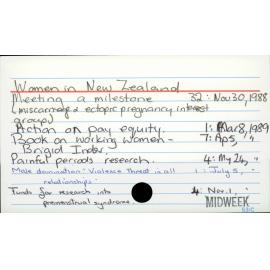 Women in New Zealand
Meeting a milestone 32: Nov 30, 1988
(miscarriage & ectopic pregnancy interest
group)
Action on pay equity. 1: Mar 8, 1989
Book on working women - 7: Ap 5, "
Brigid Inder,
Painful periods research. 4: My 24, "
Male domination: Violence threat is all 1: July 5, "
relationships
Funds for research into 4: Nov. 1, "
premenstrual syndrome.
MIDWEEK